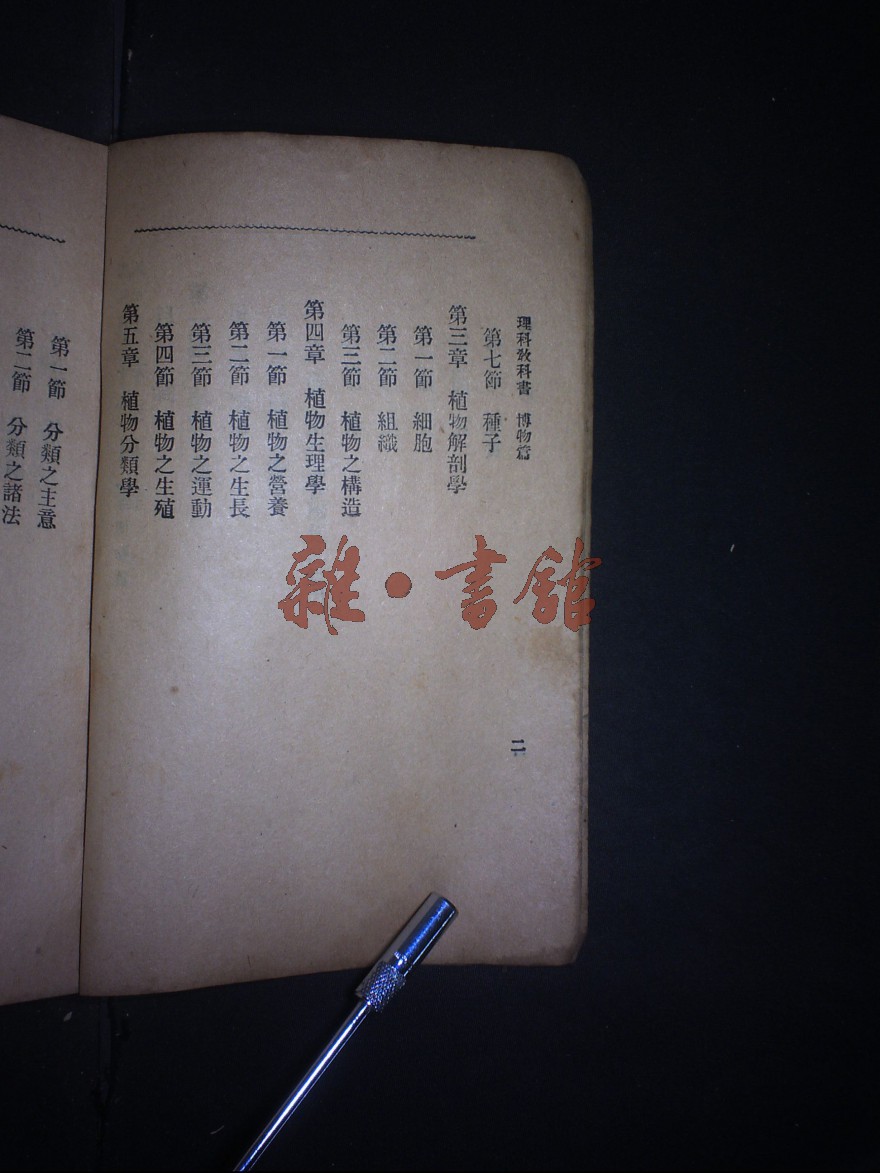 理科教科書 博物篇
第七節 種子
第三章 植物解剖學
第一節 細胞
第二節 組織
第三節 植物之構造
第四章 植物生理學
第一節 植物之營養
第二節 植物之生長
第三節 植物之運動
第四節 植物之生殖
第五章 植物分類學
二
第一節 分類之主意
第二節 分類之諸法
雜·書館